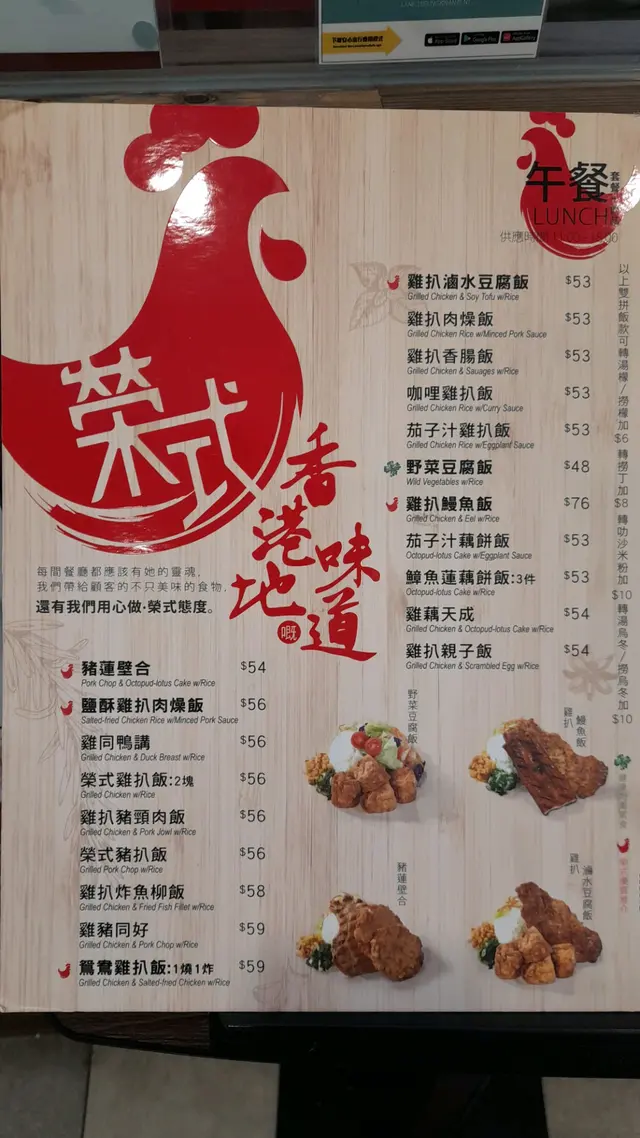 榮式
香港地
嘅
味道
每間餐廳都應該有她的靈魂,
我們帶給顧客的不只美味的食物,
還有我們用心做·榮式態度。
豬蓮壁合 $54
Pork Chop & Octopud-lotus Cake w/Rice
鹽酥雞扒肉燥飯 $56
Salted-fried Chicken Rice w/Minced Pork Sauce
雞同鴨講 $56
Grilled Chicken & Duck Breast w/Rice
榮式雞扒飯:2塊 $56
Grilled Chicken w/Rice
雞扒豬頸肉飯 $56
Grilled Chicken & Pork Jowl w/Rice
榮式豬扒飯 $56
Grilled Pork Chop w/Rice
雞扒炸魚柳飯 $58
Grilled Chicken & Fried Fish Fillet w/Rice
雞豬同好 $59
Grilled Chicken & Pork Chop w/Rice
鴛鴦雞扒飯:1燒1炸 $59
Grilled Chicken & Salted-fried Chicken w/Rice
午餐
套餐
LUNCH
供應時間
雞扒滷水豆腐飯 $53
Grilled Chicken & Soy Tofu w/Rice
雞扒肉燥飯 $53
Grilled Chicken Rice w/Minced Pork Sauce
雞扒香腸飯 $53
Grilled Chicken & Sauages w/Rice
咖哩雞扒飯 $53
Grilled Chicken Rice w/Curry Sauce
茄子汁雞扒飯 $53
Grilled Chicken Rice w/Eggplant Sauce
野菜豆腐飯 $48
Wild Vegetables w/Rice
雞扒鰻魚飯 $76
Grilled Chicken & Eel w/Rice
茄子汁藕餅飯 $53
Octopud-lotus Cake w/Eggplant Sauce
鱆魚蓮藕餅飯:3件 $53
Octopud-lotus Cake w/Rice
雞藕天成 $54
Grilled Chicken & Octopud-lotus Cake w/Rice
雞扒親子飯 $54
Grilled Chicken & Scrambled Egg w/Rice
以上雙拼飯款可轉湯檬/撈檬加$6
轉撈丁加$8
轉叻沙米粉加$10
轉湯烏冬/撈烏冬加$10
野菜豆腐飯
雞扒
鰻魚飯
豬蓮壁合
雞扒
滷水豆腐飯